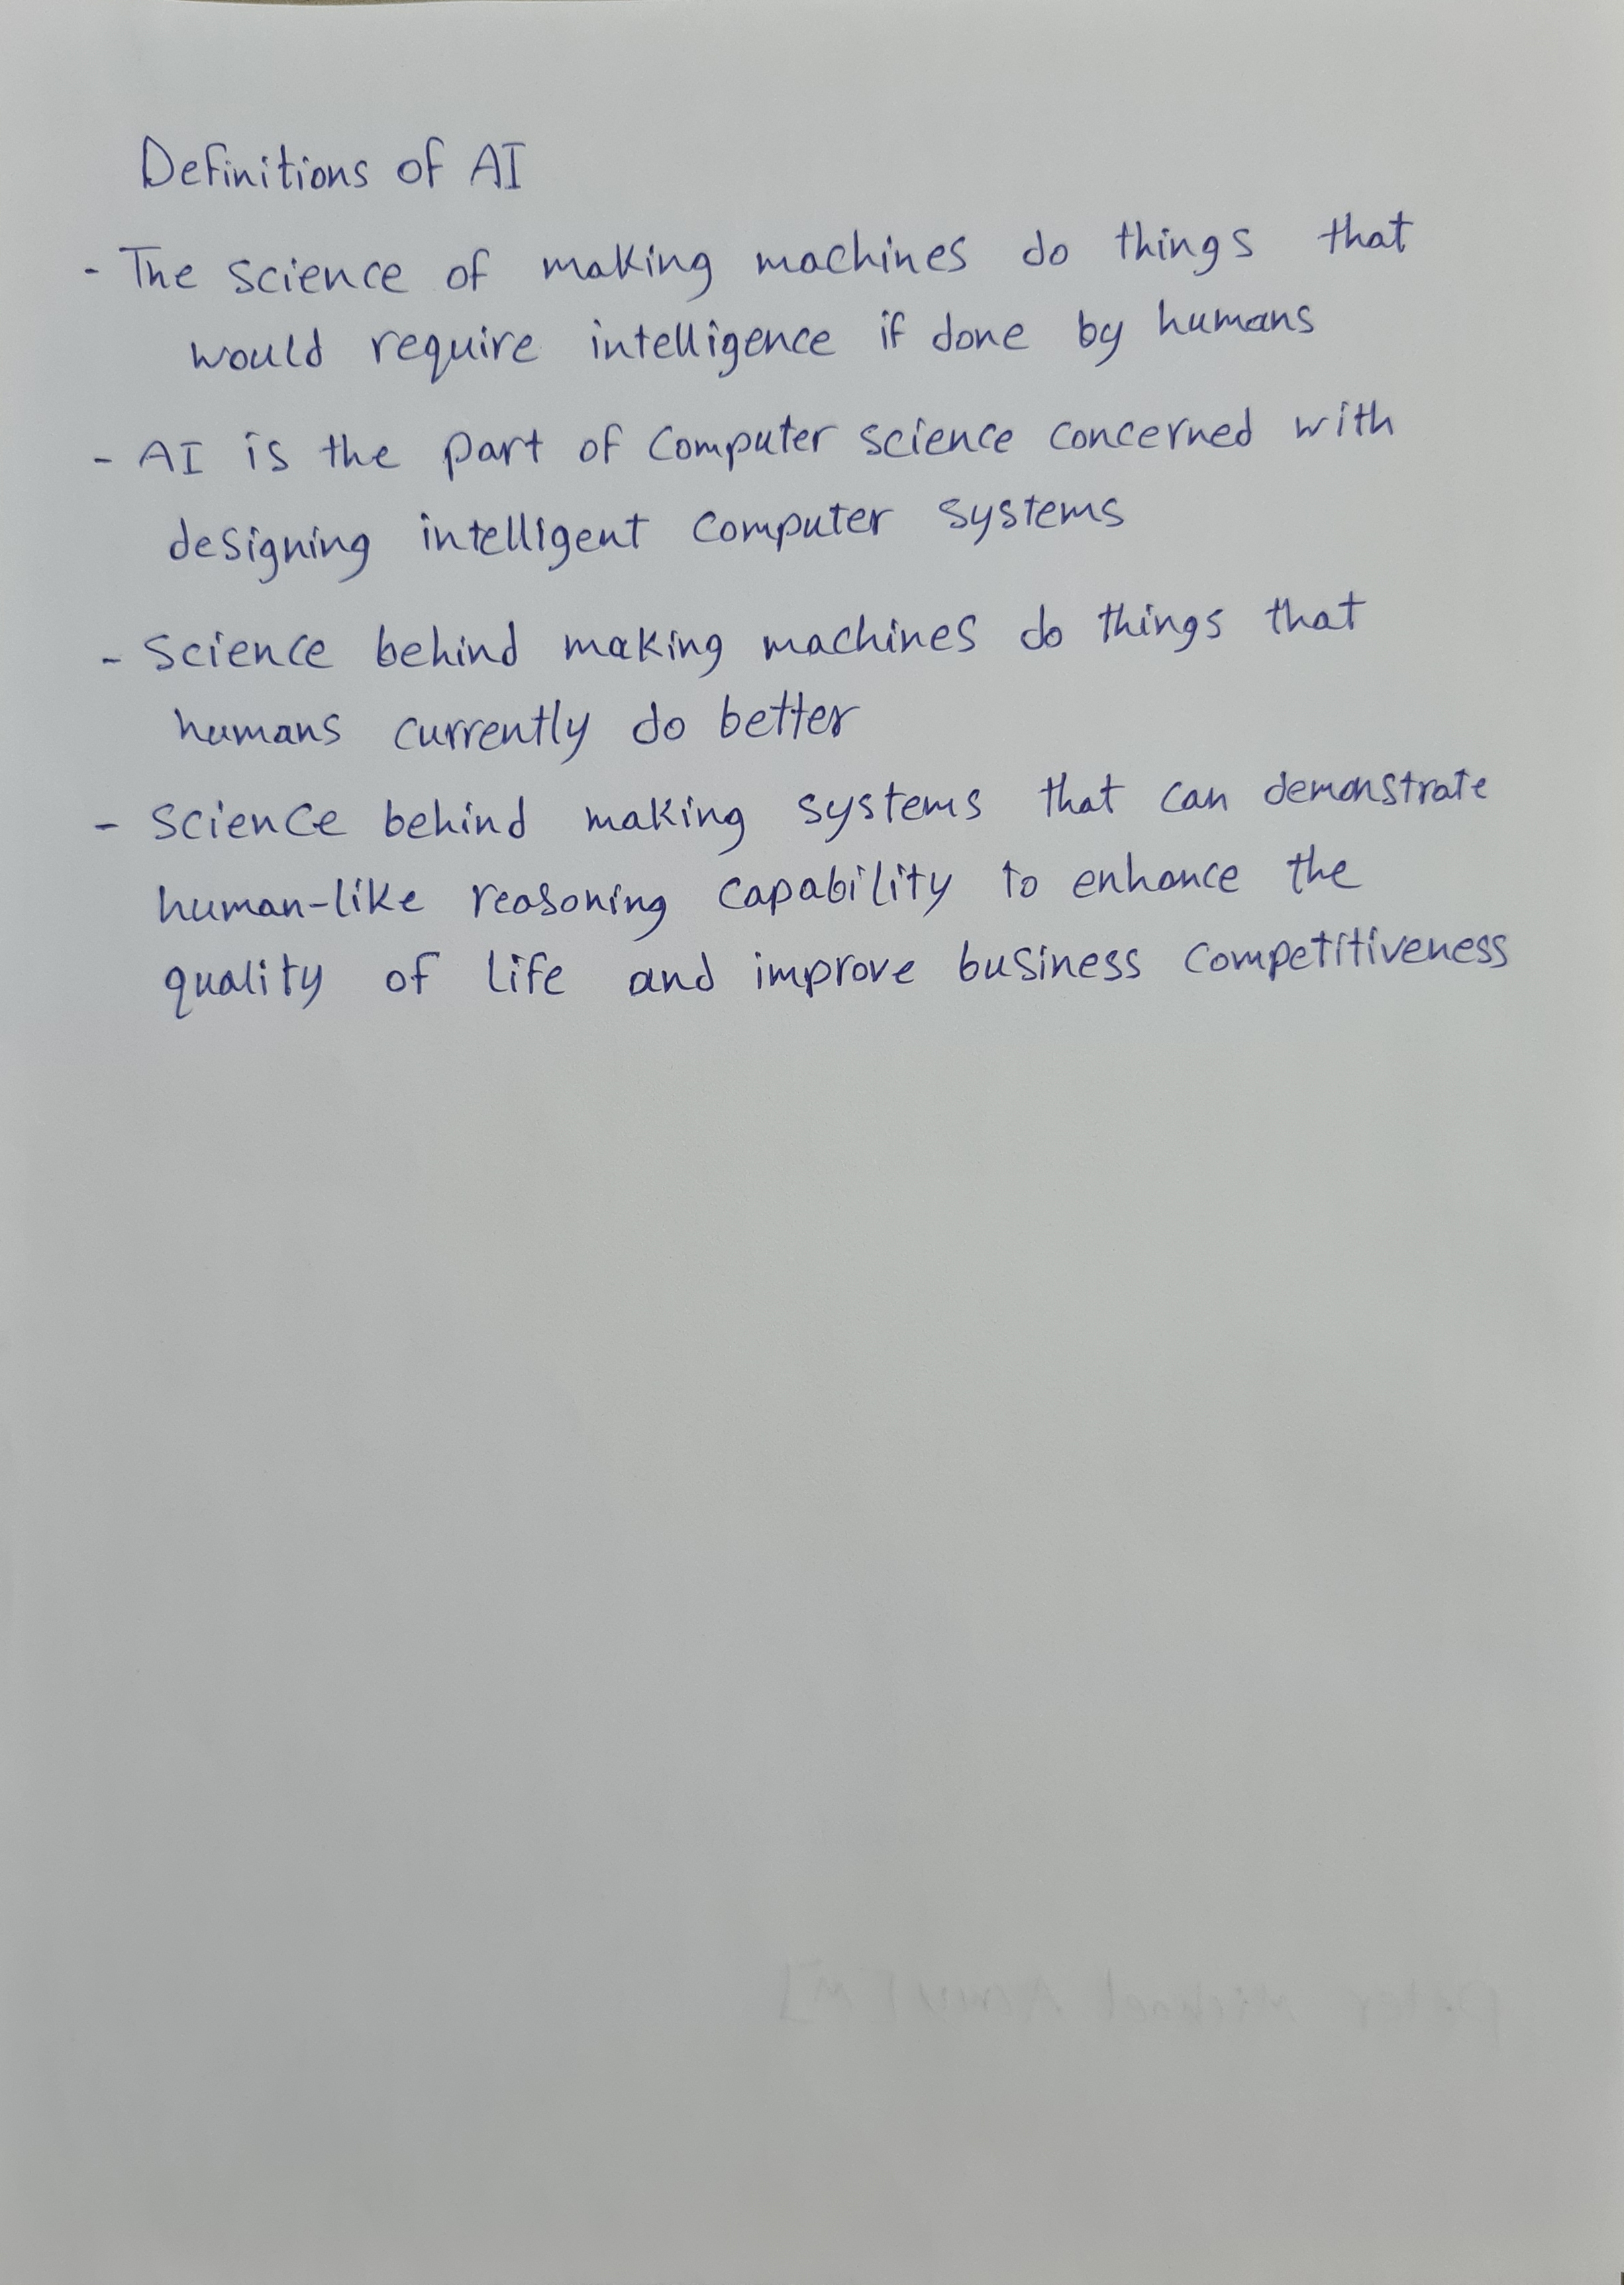 Definitions of AI
- The science of making machines do things that
would require intelligence if done by humans
- AI is the part of Computer science concerned with
designing intelligent Computer systems
- Science behind making machines do things that
humans currently do better
- Science behind making systems that can demonstrate
human-like reasoning capability to enhance the
quality of life and improve business competitiveness